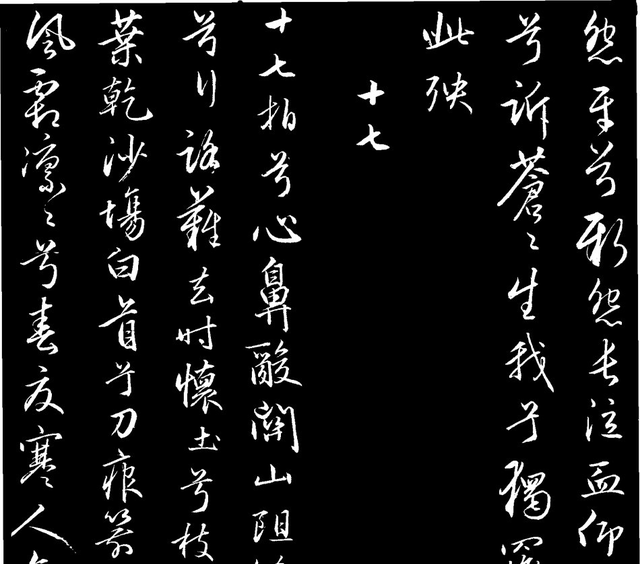 怨平兮新怨長泣血仰
兮訴蒼〻生我兮獨罹
此殃
十七
十七拍兮心鼻酸關山阻
兮行路難去时懷土兮枝
葉乾沙場白首兮刀痕箭
風霜凜〻兮春夏寒人